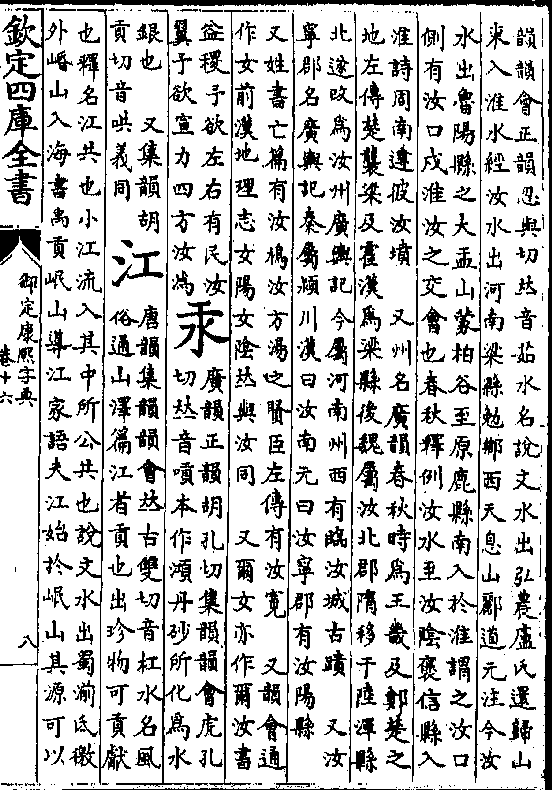 韻韻會正韻忍與切𠀤音茹水名說文水出弘農盧氏還歸山
東入淮水經汝水出河南梁縣勉鄉西天息山酈道元注今汝
水出魯陽縣之大盂山蒙柏谷至原鹿縣南入於淮謂之汝口
側有汝口戍淮汝之交會也春秋釋例汝水至汝陰褒信縣入
淮詩周南遵彼汝墳　又州名廣韻春秋時為王畿及鄭楚之
地左傳楚襲梁及霍漢為梁縣後魏屬汝北郡隋移于陸渾縣
北遂改為汝州廣輿記今屬河南州西有臨汝城古蹟　又汝
寧郡名廣輿記秦屬潁川漢曰汝南元曰汝寧郡有汝陽縣
又姓書亡篇有汝鳩汝方湯之賢臣左傳有汝寬　又韻會通
作女前漢地理志女陽女陰𠀤與汝同　又爾女亦作爾汝書
益稷予欲左右有民汝
翼予欲宣力四方汝為
汞
廣韻正韻胡孔切集韻韻會虎孔
切𠀤音嗊本作澒丹砂所化為水
銀也　又集韻胡
貢切音哄義同
江
唐韻集韻韻會𠀤古雙切音杠水名風
俗通山澤篇江者貢也出珍物可貢獻
也釋名江共也小江流入其中所公共也說文水出蜀湔氐徼
外岷山入海書禹貢岷山導江家語夫江始於岷山其源可以
欽定四庫全書
御定康熙字典
卷十六
八